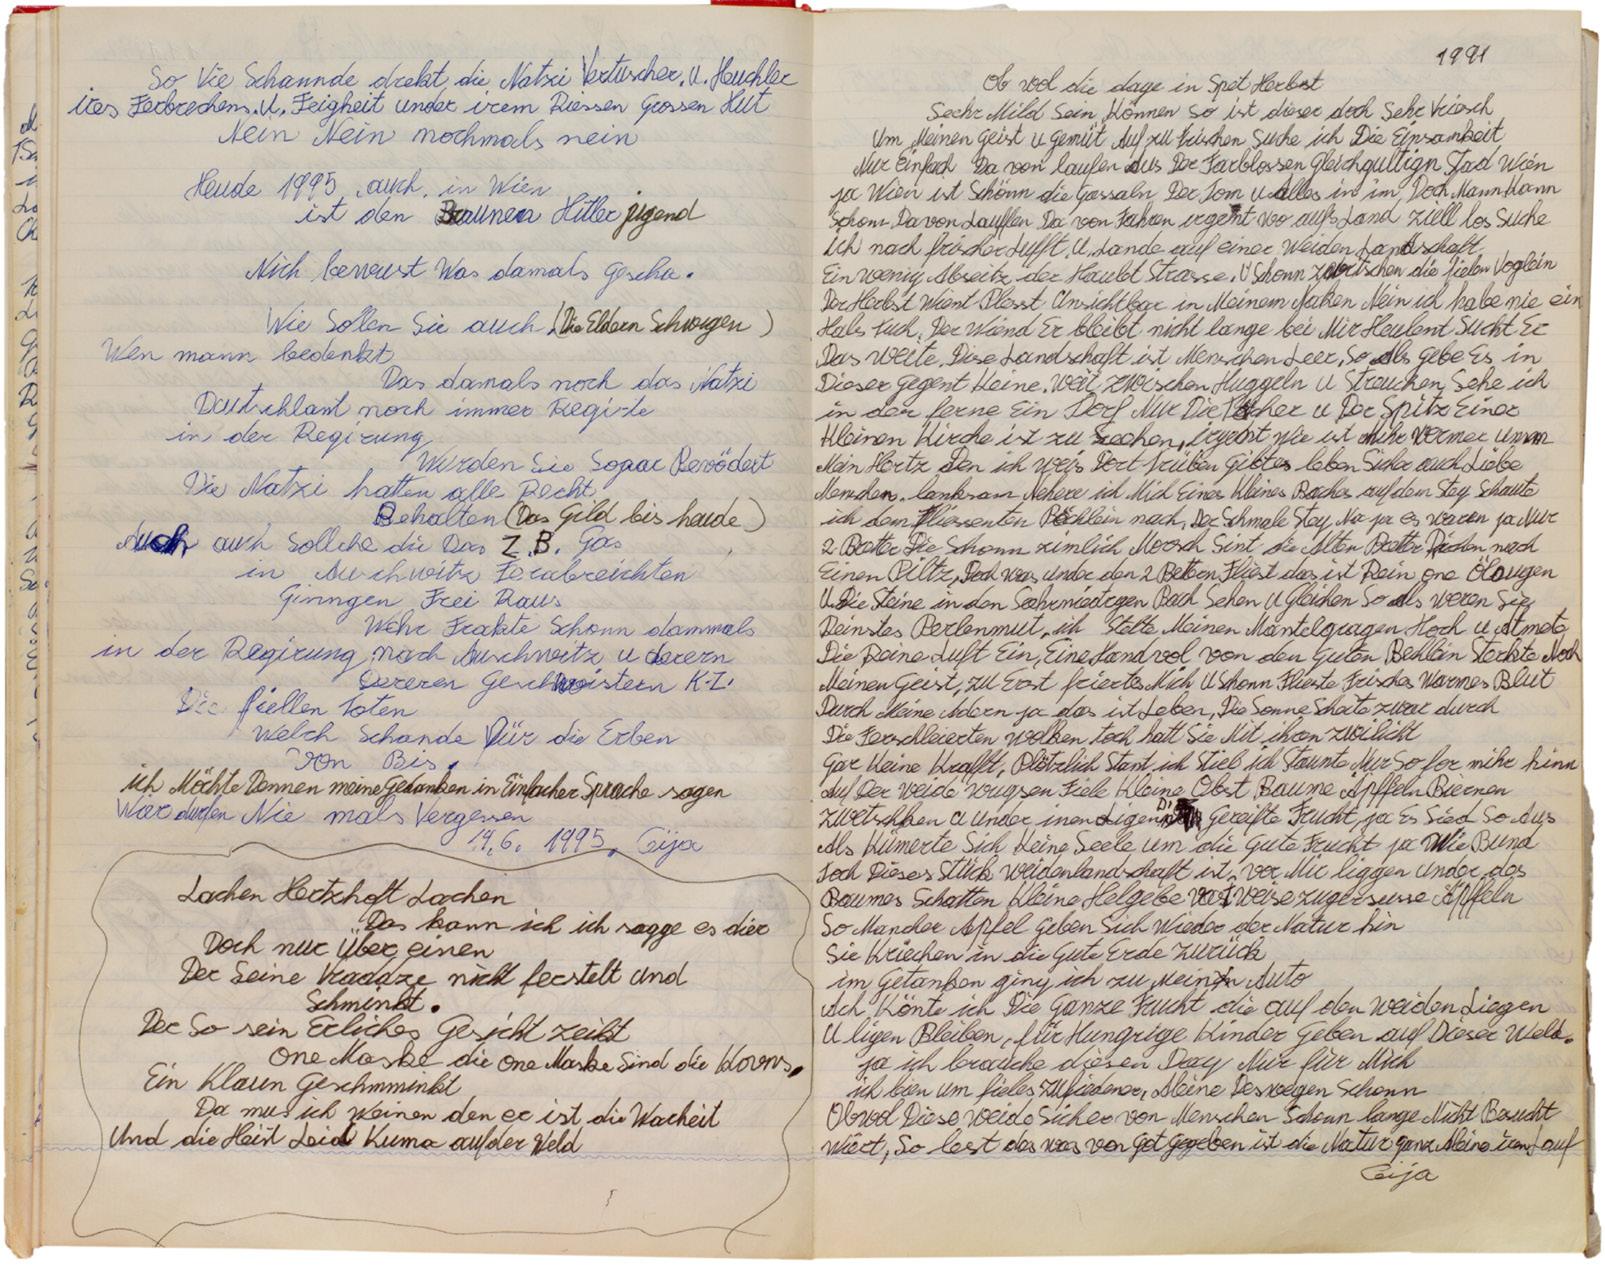 So Vie Schannde drekt die Natzi Vertuscher. U. Heuchler
ires Ferbrechens. U. Feigheit under irem Riessen Grossen Hut
Nein Nein nochmals nein
Heude 1995 auch in Wien
ist den Braunen Hitler jugend
Nich bewust Was damals Gescha.
Wie Sollen Sie auch (Die Eldern Schweigen)
Wen mann bedenkt
Das damals noch das Natzi
Dautschlant noch immer Regirte
in der Regirung
Wurden Sie Sogar Bevödert
Die Natzi hatten alle Recht
Behalten (Das Geld bis heude)
Auch auch Sollche die Das Z.B. Gas
in Auschwitz Ferabreichten
Giningen Frei Raus
Wehr Frakte Schonn dammals
in der Regirung nach Auschwitz u deren
Dereren Geschwistern K.Z.
Die fiellen toten
Welch Schande für die Erben
Von Bis.
ich Möchte Dennen meine Gedanken in Einfacher Sprache sagen
Wier durfen Nie mals Vergessen
14.6. 1995. Ceija
Lachen Hertzhaft Lachen
Das kann ich ich sagge es dier
Doch nur Über einen
Der Seine nicht ferstelt und
Schminkt.
Der So sein Erliches Gesicht zeikt
one Maske die one Maske Sind die Klovns.
Ein Klaun Geschmminkt
Da mus ich Weinen den er ist die Warheit
Und die Heit Leid Kuma auf der Weld
1991
Ob vol die dage in Spet Herbst
Seehr Mild Sein Können So ist dieser doch Sehr
Um Meinen Geist u Gemüt Auf zu frischen Suche ich Die Einsamkeit
Nur Einfach Da von laufen aus Der Farblossen Gleichgultign Stad Wien
ja Wien ist Schönn die Gassaln Der Tom u alles in im, Doch Mann Kann
Schonn Da von Lauffen Da von Fahren irgent wo aufs Land ziell los Suche
Ich nach frischer Lufft, U. Lande auf einer Weiden Landschaft
Ein wenig Abseitz der Haubt Strasse. U Schonn zwitschen die fielen Voglein
Der Herbst Wient Blesst Unsichtbar in Meinem Naken Nein ich habe nie ein
Hals tuch. Der Wiend Er bleibt nicht lange bei Mir Heulent Sucht Er
Das Weite. Dise Landschaft ist Menschen Leer, So als Gebe Es in
Dieser Gegent Keine. Weit zwischen Huggeln u Streuchen Sehe ich
in der ferne Ein Dorf Nur Die Decher u Der Spitz Einer
Kleinen Kirche ist zu Seehen, irgent wie ist mihr Vermer umm
Mein Hertz Den ich weis Dort trüben Gibt es leben Sicher auch Liebe
Menschen. lanksam Nehere ich Mich Eines Kleines Baches auf dem Steg Schaute
ich dem Fliessenten Bächlein nach, Der Schmale Steg Na ja es waren ja Nur
2 Bretter Die Schonn zimlich Morsch Sint die Alten Bretter Riechen nach
Einen Piltz, Doch was under den 2 Bettern Fliest das ist Rein one Ölaugen
U. Die Steine in den Bach Sehen U Gleichen So als weren Sie
Reinstes Perlenmut, ich Stelte Meinen Mantelgragen Hoch u Atmete
Die Reine Luft Ein, Eine Hand vol von den Guten Bechlein Sterkte Noch
Meinen Geist, zu Erst frierte Mich U Schonn Flieste Frisches Warmes Blut
Durch Meine Adern ja das ist Leben, Die Sonne Scheite zwar durch
Die Ferschleierten Wolken Doch hatt Sie Mit ihren zwilicht
Gar Keine Krafft, Plötzlich Stant ich Still ich Staunte Nur So for mihr hinn
Auf Der Weide Wugsen Fiele Kleine Obst Baume Äpffeln Biernen
zwetschken U under inen Ligen Die Gereifte Frucht, ja Es Sied So Aus
Als Kümerte Sich Keine Seele um die Gute Frucht ja Wie Bund
Doch Dieses Stück Weidenlandschaft ist, vor Mir liggen under das
Baumes Schatten Kleine Helgelbe zugersusse Äpffeln
So Mancher Apfel Geben Sich Wieder der Natur hin
Sie Kriechen in die Gute Erde zurück
im Getanken ging ich zu Meinen Auto
Ach Könte ich Die Ganze Frucht die auf den Weiden Liegen
U ligen Bleiben, für Hungrige Kinder Geben auf Dieser Weld.
ja ich brauche diesen Dag Nur für Mich
ich bien um fieles zufriedener, Alleine Deswegen Schonn
Obvol Diese Weide Sicher von Menschen Schonn lange Nicht Besucht
Wiert, So lest das was von Got Gegeben ist die Natur ganz Aleine iren Lauf
Ceija